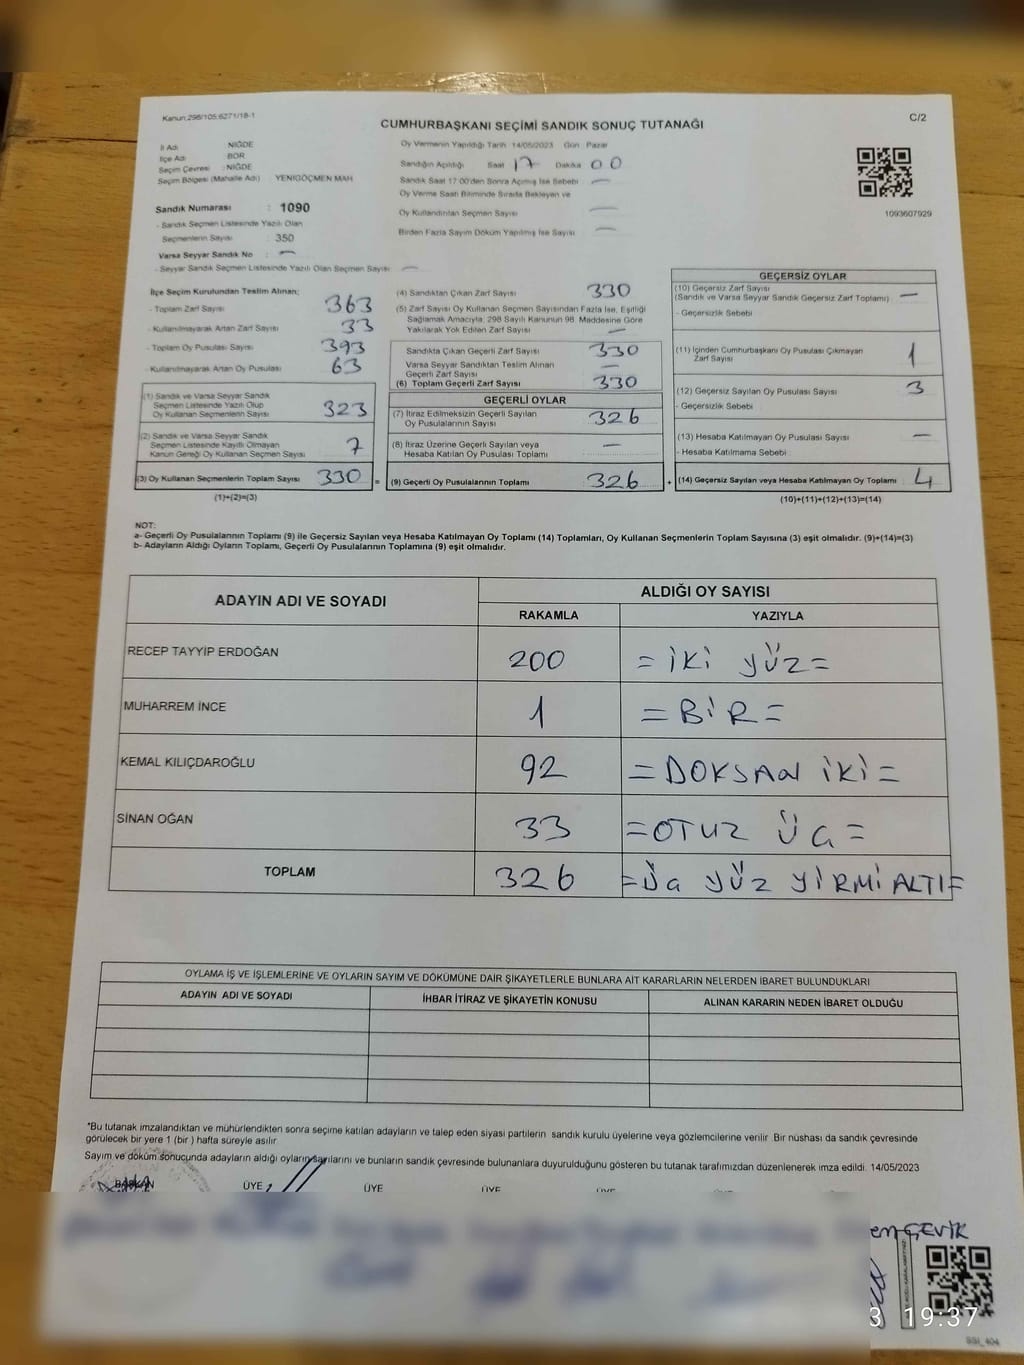 Kanun:298/105:6271/18-1
CUMHURBAŞKANI SEÇİMİ SANDIK SONUÇ TUTANAĞI
C/2
İl Adı NİĞDE
İlçe Adı BOR
Seçim Çevresi : NİĞDE
Seçim Bölgesi (Mahalle Adı) YENİGÖÇMEN MAH
Sandık Numarası : 1090
- Sandık Seçmen Listesinde Yazılı Olan
Seçmenlerin Sayısı : 350
Varsa Seyyar Sandık No : —
- Seyyar Sandık Seçmen Listesinde Yazılı Olan Seçmen Sayısı —
Oy Vermenin Yapıldığı Tarih 14/05/2023 Gün Pazar
Sandığın Açıldığı Saat 17 Dakika 00
Sandık Saat 17:00'den Sonra Açılmış İse Sebebi —
Oy Verme Saati Bitiminde Sırada Bekleyen ve
Oy Kullandırılan Seçmen Sayısı —
Birden Fazla Sayım Döküm Yapılmış İse Sayısı —
1093607929
İlçe Seçim Kurulundan Teslim Alınan;
- Toplam Zarf Sayısı 363
- Kullanılmayarak Artan Zarf Sayısı 33
- Toplam Oy Pusulası Sayısı 393
- Kullanılmayarak Artan Oy Pusulası 63
(1) Sandık ve Varsa Seyyar Sandık
Seçmen Listesinde Yazılı Olup
Oy Kullanan Seçmenlerin Sayısı 323
(2) Sandık ve Varsa Seyyar Sandık
Seçmen Listesinde Kayıtlı Olmayan
Kanun Gereği Oy Kullanan Seçmen Sayısı 7
(3) Oy Kullanan Seçmenlerin Toplam Sayısı 330 =
(1)+(2)=(3)
(4) Sandıktan Çıkan Zarf Sayısı 330
(5) Zarf Sayısı Oy Kullanan Seçmen Sayısından Fazla İse, Eşitliği
Sağlamak Amacıyla; 298 Sayılı Kanunun 98. Maddesine Göre
Yakılarak Yok Edilen Zarf Sayısı —
Sandıkta Çıkan Geçerli Zarf Sayısı 330
Varsa Seyyar Sandıktan Teslim Alınan
Geçerli Zarf Sayısı —
(6) Toplam Geçerli Zarf Sayısı 330
GEÇERLİ OYLAR
(7) İtiraz Edilmeksizin Geçerli Sayılan
Oy Pusulalarının Sayısı 326
(8) İtiraz Üzerine Geçerli Sayılan veya
Hesaba Katılan Oy Pusulası Toplamı —
(9) Geçerli Oy Pusulalarının Toplamı 326 +
GEÇERSİZ OYLAR
(10) Geçersiz Zarf Sayısı
(Sandık ve Varsa Seyyar Sandık Geçersiz Zarf Toplamı) —
- Geçersizlik Sebebi
(11) İçinden Cumhurbaşkanı Oy Pusulası Çıkmayan
Zarf Sayısı 1
(12) Geçersiz Sayılan Oy Pusulası Sayısı 3
- Geçersizlik Sebebi
(13) Hesaba Katılmayan Oy Pusulası Sayısı —
- Hesaba Katılmama Sebebi
(14) Geçersiz Sayılan veya Hesaba Katılmayan Oy Toplamı 4
(10)+(11)+(12)+(13)=(14)
NOT:
a- Geçerli Oy Pusulalarının Toplamı (9) ile Geçersiz Sayılan veya Hesaba Katılmayan Oy Toplamı (14) Toplamları, Oy Kullanan Seçmenlerin Toplam Sayısına (3) eşit olmalıdır. (9)+(14)=(3)
b- Adayların Aldığı Oyların Toplamı, Geçerli Oy Pusulalarının Toplamına (9) eşit olmalıdır.
ADAYIN ADI VE SOYADI
ALDIĞI OY SAYISI
RAKAMLA YAZIYLA
RECEP TAYYİP ERDOĞAN 200 = İKİ YÜZ =
MUHARREM İNCE 1 = BİR =
KEMAL KILIÇDAROĞLU 92 = DOKSAN İKİ =
SİNAN OĞAN 33 = OTUZ ÜÇ =
TOPLAM 326 = ÜÇ YÜZ YİRMİ ALTI =
OYLAMA İŞ VE İŞLEMLERİNE VE OYLARIN SAYIM VE DÖKÜMÜNE DAİR ŞİKAYETLERLE BUNLARA AİT KARARLARIN NELERDEN İBARET BULUNDUKLARI
ADAYIN ADI VE SOYADI İHBAR İTİRAZ VE ŞİKAYETİN KONUSU ALINAN KARARIN NEDEN İBARET OLDUĞU
*Bu tutanak imzalandıktan ve mühürlendikten sonra seçime katılan adayların ve talep eden siyasi partilerin sandık kurulu üyelerine veya gözlemcilerine verilir. Bir nüshası da sandık çevresinde
görülecek bir yere 1 (bir ) hafta süreyle asılır.
Sayım ve döküm sonucunda adayların aldığı oyların sayılarını ve bunların sandık çevresinde bulunanlara duyurulduğunu gösteren bu tutanak tarafımızdan düzenlenerek imza edildi. 14/05/2023
BAŞKAN ÜYE ÜYE ÜYE ÜYE ÜYE
ÇEVİK
19:37